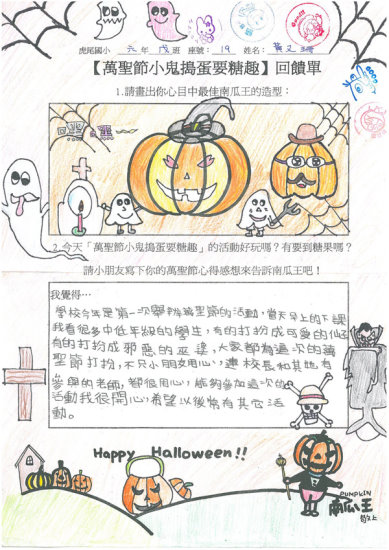 虎尾國小 六年 戊班 座號：19 姓名：黃
【萬聖節小鬼搗蛋要糖趣】回饋單
1.請畫出你心目中最佳南瓜王的造型：
2.今天「萬聖節小鬼搗蛋要糖趣」的活動好玩嗎？有要到糖果嗎？
請小朋友寫下你的萬聖節心得感想來告訴南瓜王吧！
我覺得…
學校今年是第一次舉辦萬聖節的活動，當天早上的下課
我看很多中低年級的學生，有的打扮成可愛的仙子
有的打扮成邪惡的巫婆，大家都為這次的萬
聖節打扮，不只小朋友用心，連校長和其他有
參與的老師，都很用心，能夠參加這次的
活動我很開心，希望以後常有其它活
動。
Happy Halloween!!
PUMPKIN
南瓜王
敬上